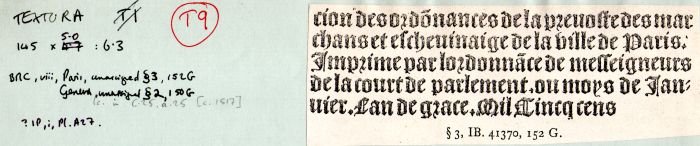 TEXTURA T1 T9
145 × 5.0 : 6.3
BMC, viii, Paris, unassigned § 3, 152 G
Geneva, unassigned § 2, 150 G
[c. 1517]
? IP, i, Pl. A27.
cion des ordõnances de la preuoste des mar
chans et escheuinaige de la ville de Paris.
Imprime par lordonnãce de messeigneurs
de la court de parlement. ou moys de Jan-
uier. Lan de grace. Mil Cincq cens
§ 3, IB. 41370, 152 G.